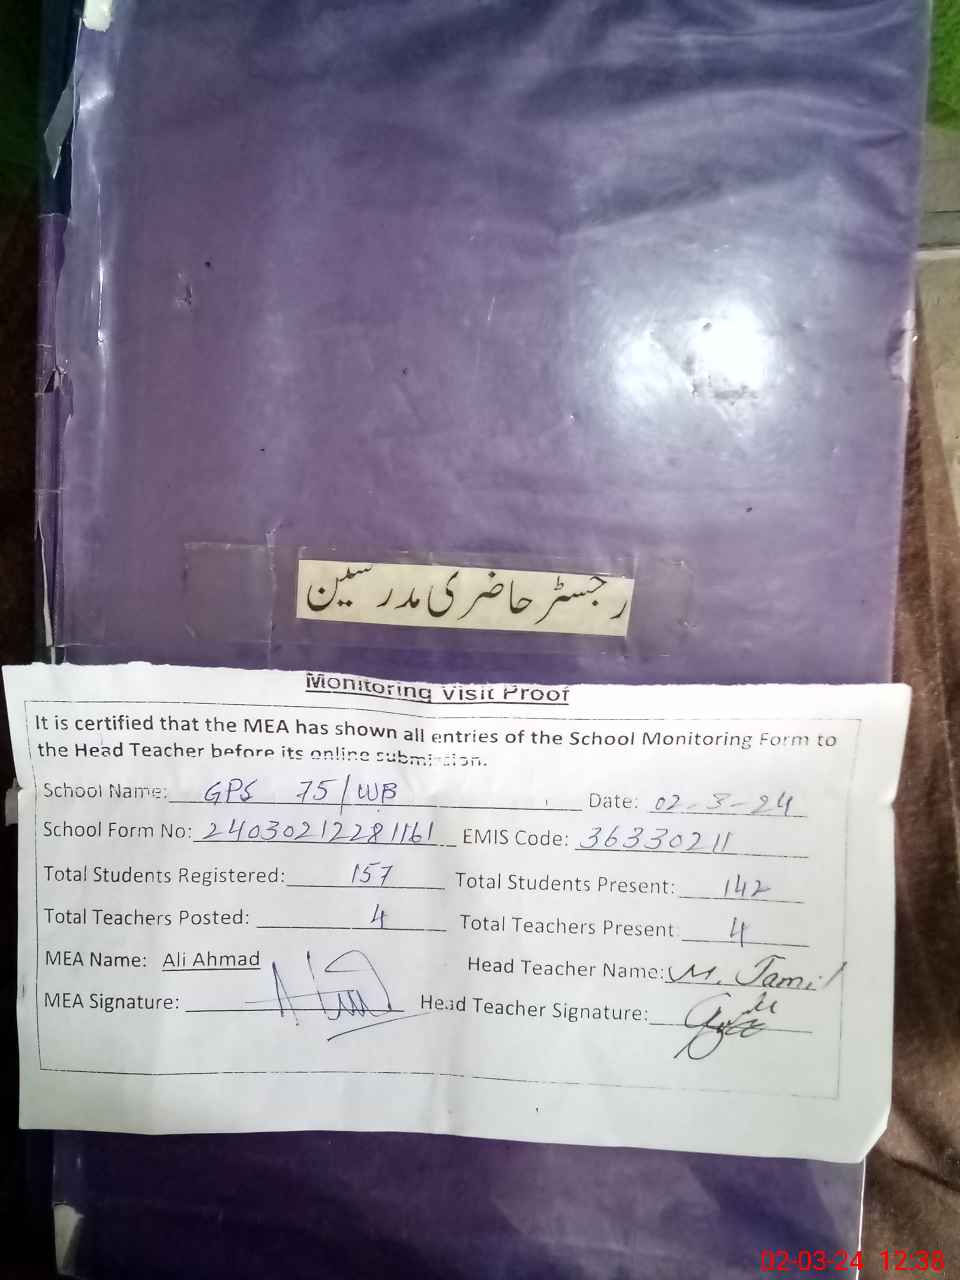 رجسٹر حاضری مدرسین
Monitoring Visit Proof
It is certified that the MEA has shown all entries of the School Monitoring Form to
the Head Teacher before its online submission.
School Name: GPS 75/WB Date: 02-3-24
School Form No: 24030212281161 EMIS Code: 36330211
Total Students Registered: 157 Total Students Present: 142
Total Teachers Posted: 4 Total Teachers Present: 4
MEA Name: Ali Ahmad Head Teacher Name: M. Jamil
MEA Signature: Head Teacher Signature:
02-03-24 12:38